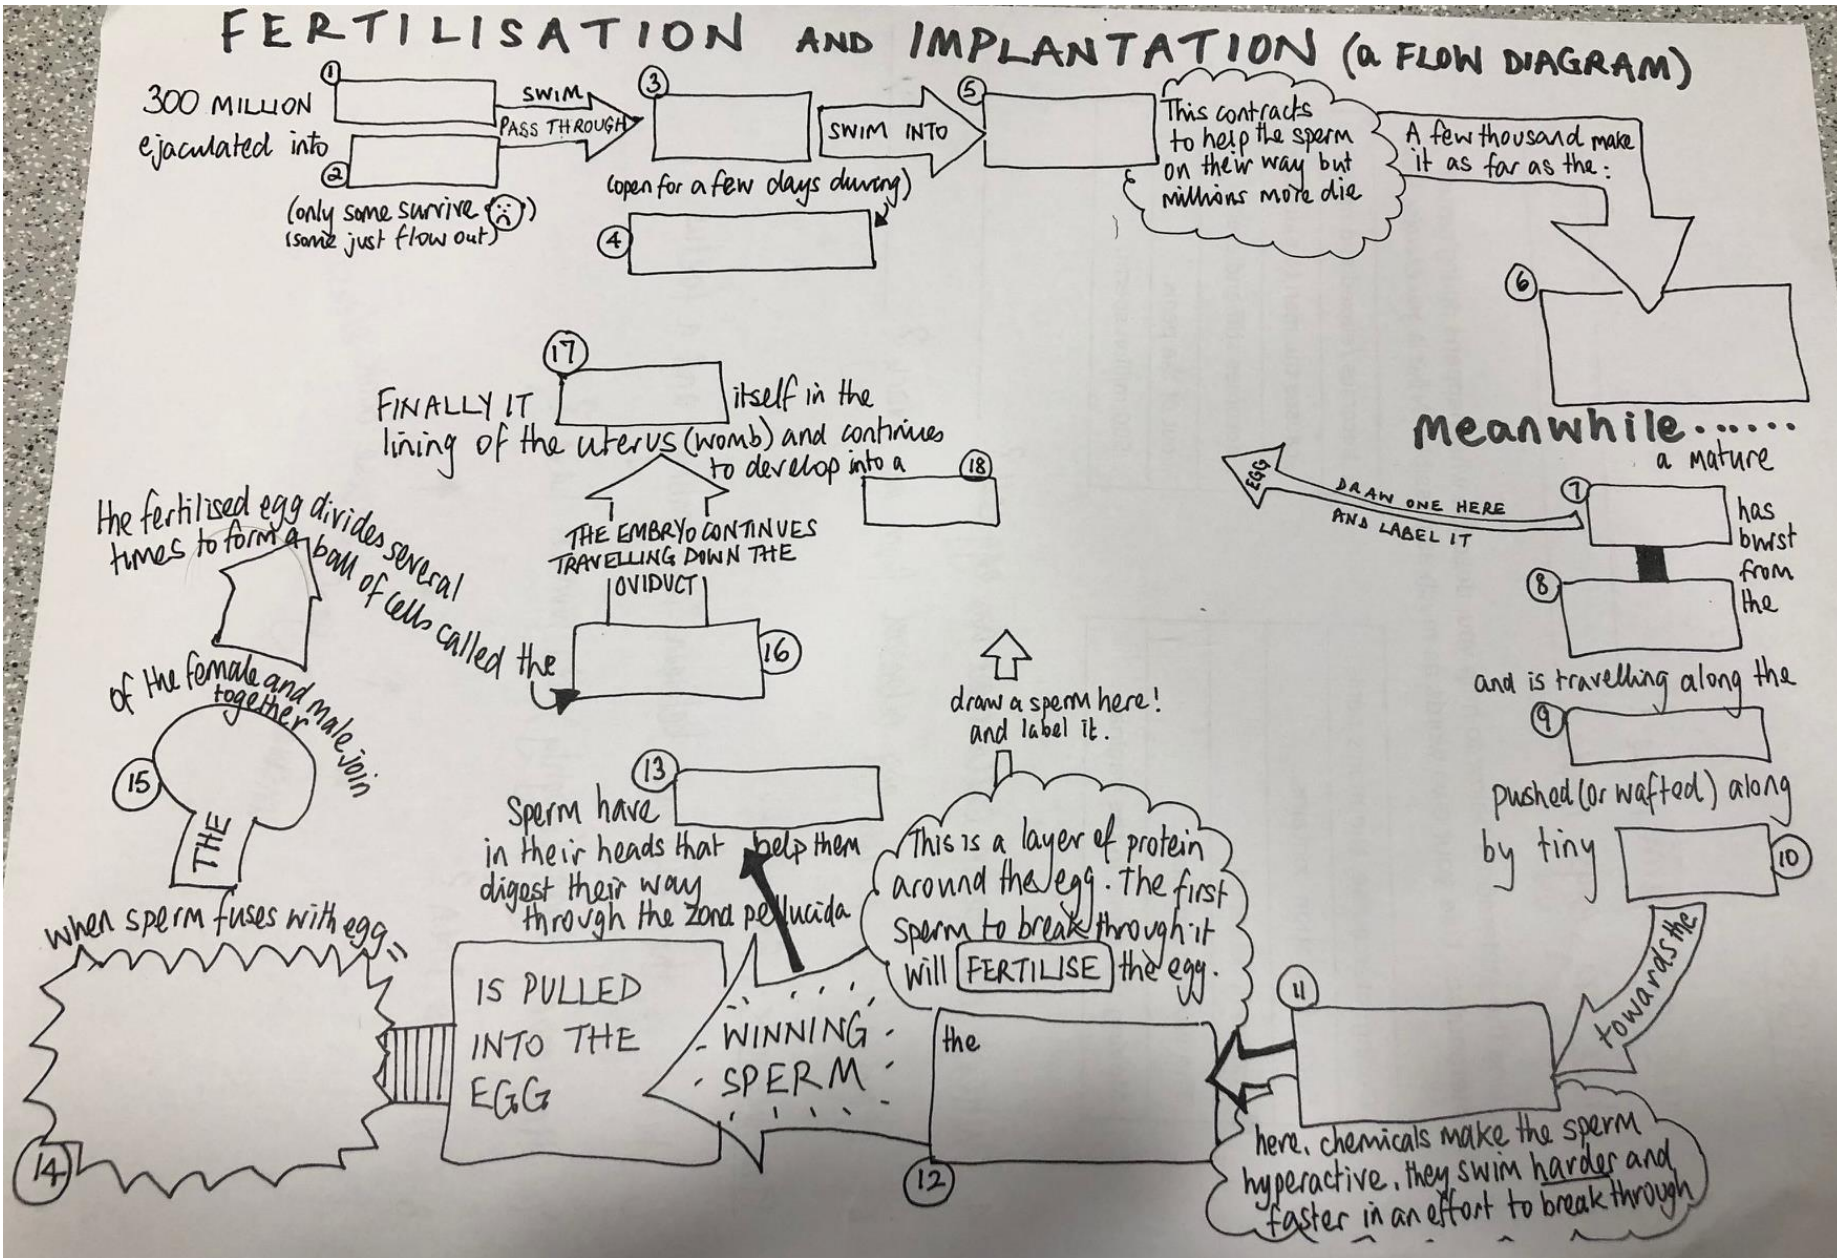 FERTILISATION AND IMPLANTATION (a FLOW DIAGRAM)
300 MILLION
ejaculated into
1
2
(only some survive)
(some just flow out)
SWIM
PASS THROUGH
3
(open for a few days during)
4
SWIM INTO
5
This contracts
to help the sperm
on their way but
millions more die
A few thousand make
it as far as the:
6
Meanwhile......
a mature
7
has
burst
from
the
DRAW ONE HERE
AND LABEL IT
EGG
8
and is travelling along the
9
pushed (or wafted) along
by tiny
10
towards the
11
here, chemicals make the sperm
hyperactive, they swim harder and
faster in an effort to break through
12
the
This is a layer of protein
around the egg. The first
sperm to break through it
will FERTILISE the egg.
draw a sperm here!
and label it.
WINNING
SPERM
13
Sperm have
in their heads that help them
digest their way
through the zona pellucida
IS PULLED
INTO THE
EGG
14
when sperm fuses with egg
THE
15
of the female and male join
together
the fertilised egg divides several
times to form a ball of cells called the
16
THE EMBRYO CONTINUES
TRAVELLING DOWN THE
OVIDUCT
17
FINALLY IT
itself in the
lining of the uterus (womb) and continues
to develop into a
18